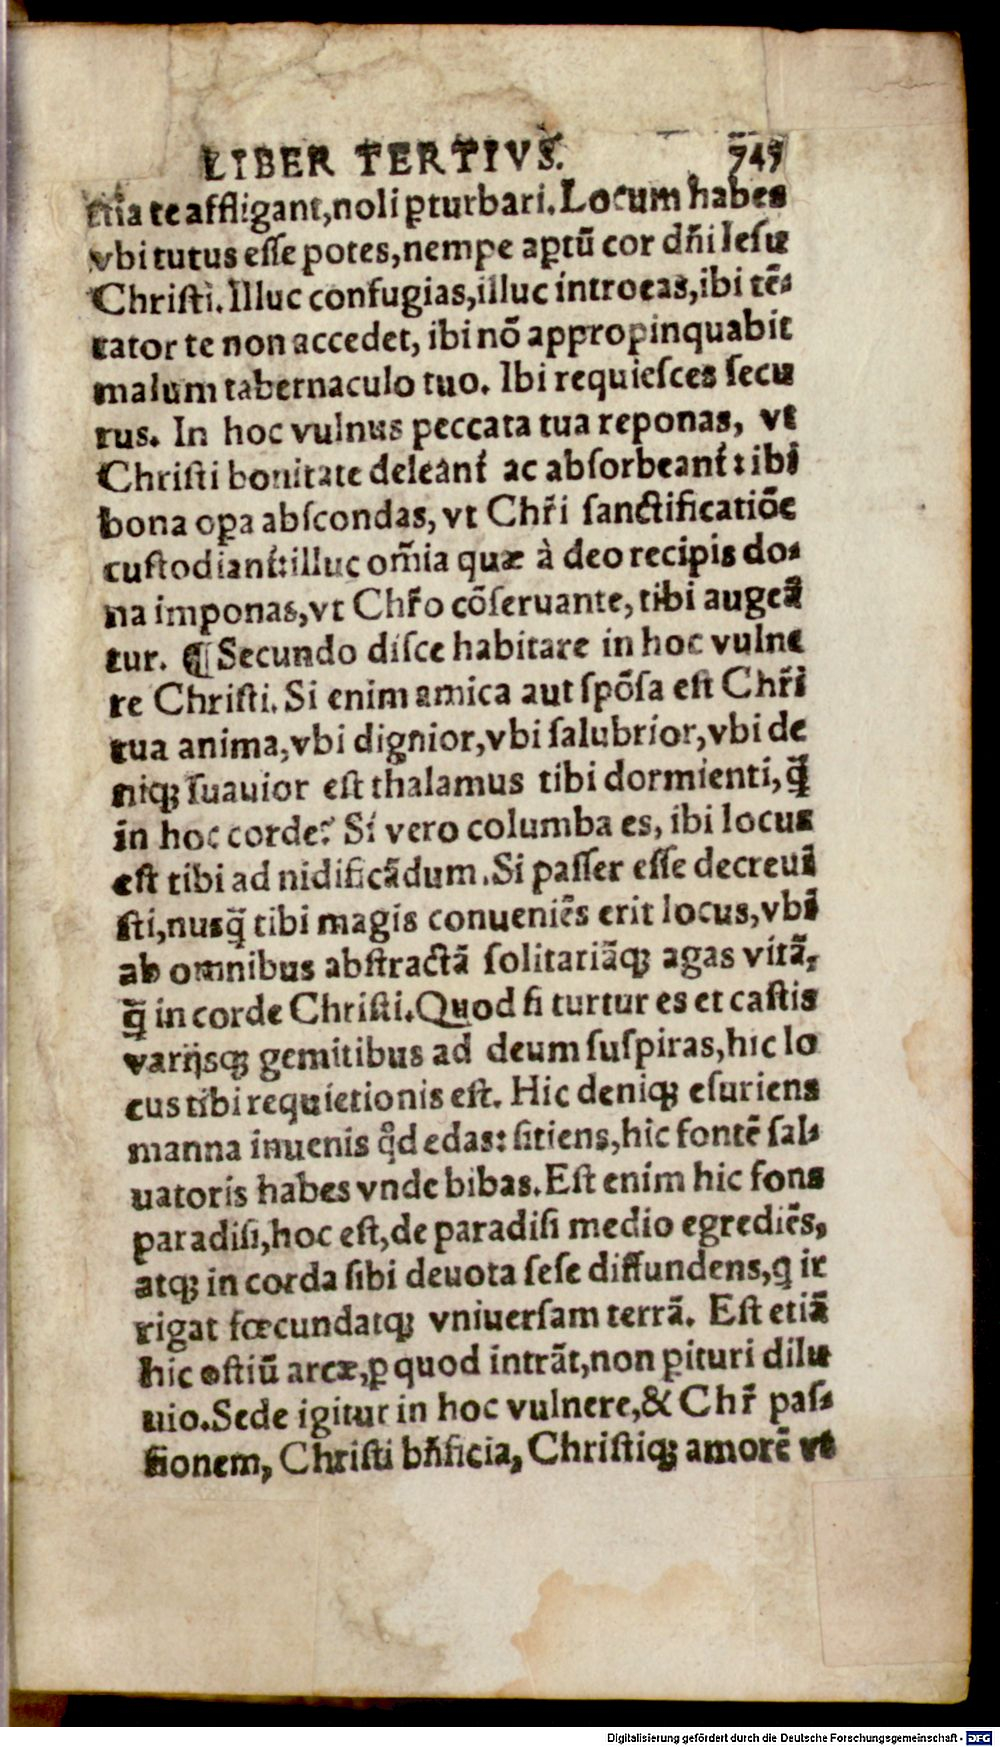 LIBER TERTIVS. 745
etia te affligant,noli ꝑturbari.Locum habes
vbi tutus eſſe potes,nempe aptū cor dñi Ieſu
Chriſti. Illuc confugias,illuc introeas,ibi tē-
tator te non accedet, ibi nō appropinquabit
malum tabernaculo tuo. Ibi requieſces ſecu
rus. In hoc vulnus peccata tua reponas, vt
Chriſti bonitate deleant́ ac abſorbeant́: ibi
bona oꝑa abſcondas, vt Chr̃i ſanctificatiōe
cuſtodiant́:illuc om̃ia quæ à deo recipis do-
na imponas,vt Chr̃o cōſeruante, tibi augeā
tur. ¶ Secundo diſce habitare in hoc vulne
re Chriſti. Si enim amica aut ſpōſa eſt Chr̃i
tua anima,vbi dignior,vbi ſalubrior,vbi de
niqꝫ ſuauior eſt thalamus tibi dormienti,q̄
in hoc corde? Si vero columba es, ibi locus
eſt tibi ad nidificādum.Si paſſer eſſe decreui
ſti,nusq̄ tibi magis conueniēs erit locus,vbi
ab omnibus abſtractā ſolitariāqꝫ agas vitā,
q̄ in corde Chriſti.Quod ſi turtur es et caſtis
varijsqꝫ gemitibus ad deum ſuſpiras,hic lo
cus tibi requietionis eſt. Hic deniqꝫ eſuriens
manna inuenis qd̊ edas: ſitiens,hic fontē ſal-
uatoris habes vnde bibas.Eſt enim hic fons
paradiſi,hoc eſt,de paradiſi medio egrediēs,
atqꝫ in corda ſibi deuota ſeſe diffundens,q ir
rigat fœcundatqꝫ vniuerſam terrā. Eſt etiā
hic oſtiū arcæ,ꝑ quod intrāt,non ꝑituri dilu
uio.Sede igitur in hoc vulnere,& Chr̃ paſ-
ſionem, Chriſti bñficia, Chriſtiqꝫ amorē vt
Digitalisierung gefördert durch die Deutsche Forschungsgemeinschaft - DFG